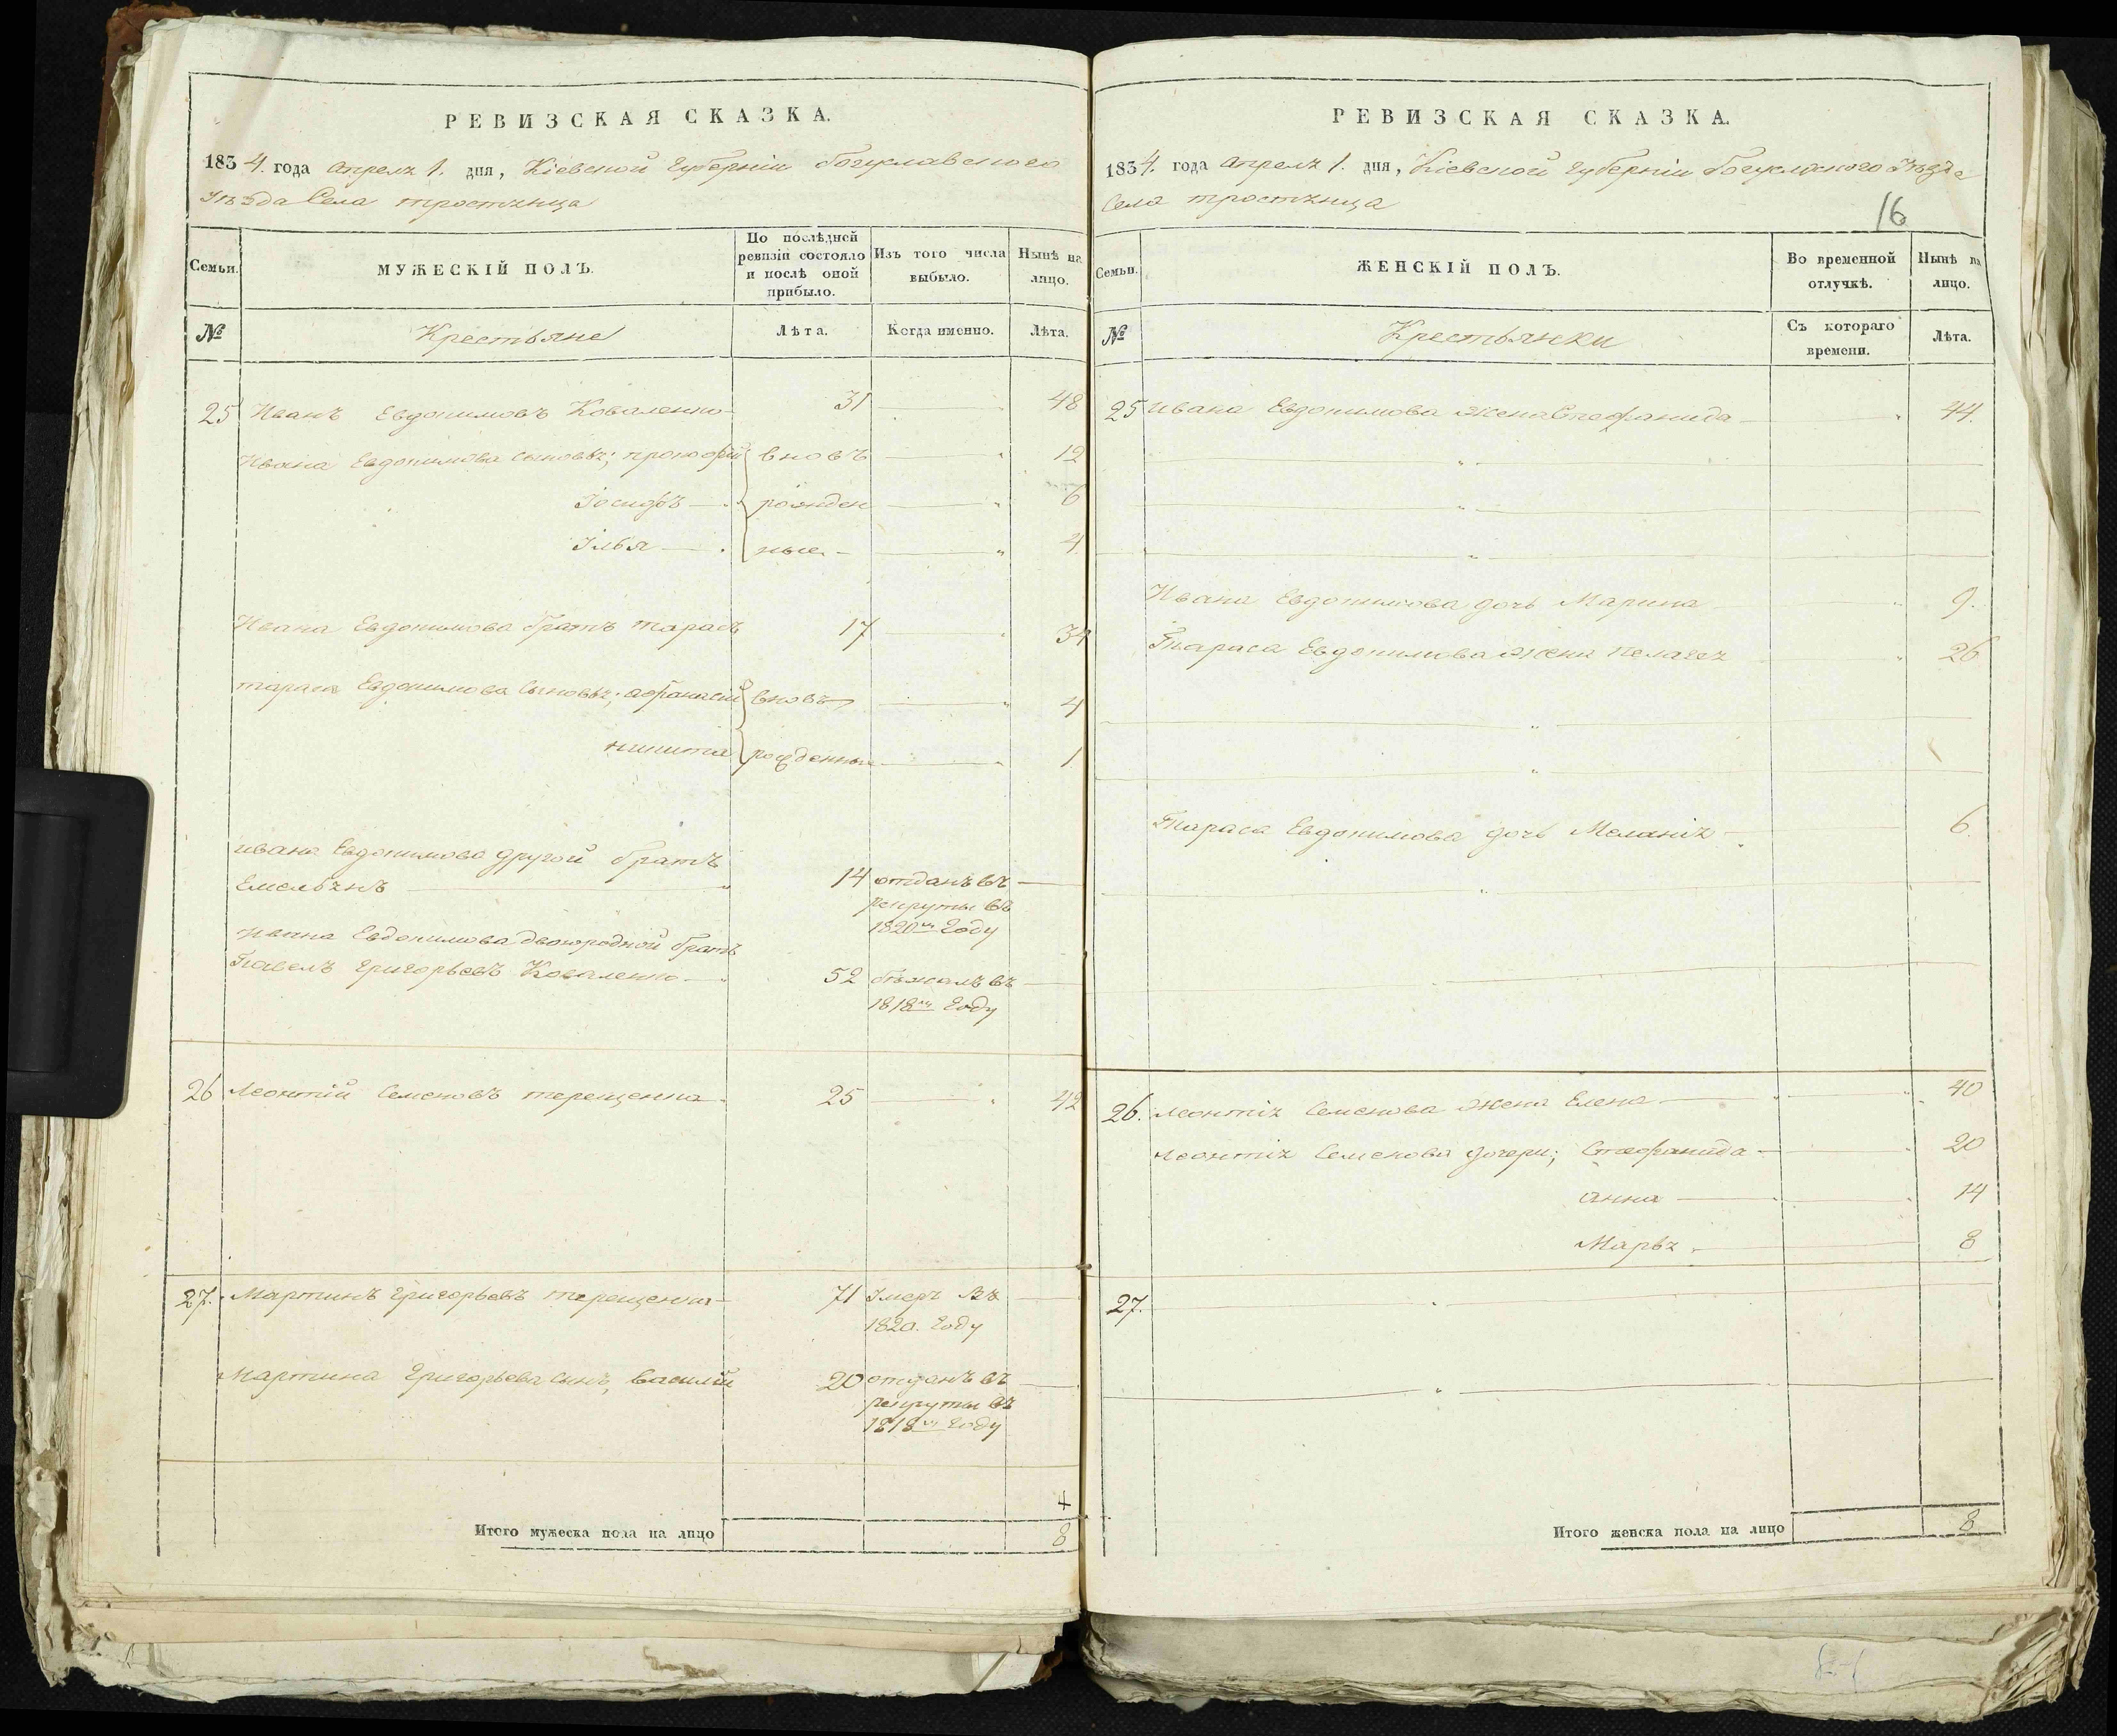 РЕВИЗСКАЯ СКАЗКА.
1834. года апреля 1. дня, Кіевской губерніи Богуславского
Уѣзда Села тростянца
Семьи.
МУЖЕСКІЙ ПОЛЪ.
По послѣдней
ревизіи состояло
и послѣ оной
прибыло.
Изъ того числа
выбыло.
Нынѣ на
лицо.
№
Крестьяне
Лѣта.
Когда именно.
Лѣта.
25 Иванъ Евдокимовъ Коваленко 31 48
Ивана Евдокимова сыновья; прокофій вновь 12
Іосифъ рожден 6
Илья ные 4
Ивана Евдокимова братъ тарасъ 17 34
тараса Евдокимова сыновья; афанасій вновь 4
никита рожденные 1
ивана Евдокимова другой братъ
Емельянъ 14 отданъ въ
рекруты въ
1820мъ году
Ивана Евдокимова двоюродной братъ
Павелъ григорьевъ Коваленко 52 бѣжалъ въ
1818мъ году
26 Леонтій Семеновъ терещенко 25 42
27. Мартинъ григорьевъ терещенко 71 Умеръ въ
1820. году
Мартина григорьева сынъ, василій 20 отданъ въ
рекруты въ
1818мъ году
Итого мужеска пола на лицо 8
РЕВИЗСКАЯ СКАЗКА.
1834. года апреля 1. дня, Кіевской губерніи Богуславского Уѣзда
Села тростянца
16
Семьи.
ЖЕНСКІЙ ПОЛЪ.
Во временной
отлучкѣ.
Нынѣ на
лицо.
№
Крестьянки
Съ котораго
времени.
Лѣта.
25 Ивана Евдокимова жена Стефанида 44.
Ивана Евдокимова дочь Марина 9.
Тараса Евдокимова жена Пелагея 26
Тараса Евдокимова дочь Меланія 6.
26. Леонтія Семенова жена Елена 40
Леонтія Семенова дочери; Стефанида 20
Анна 14
Марья 8
27.
Итого женска пола на лицо 8